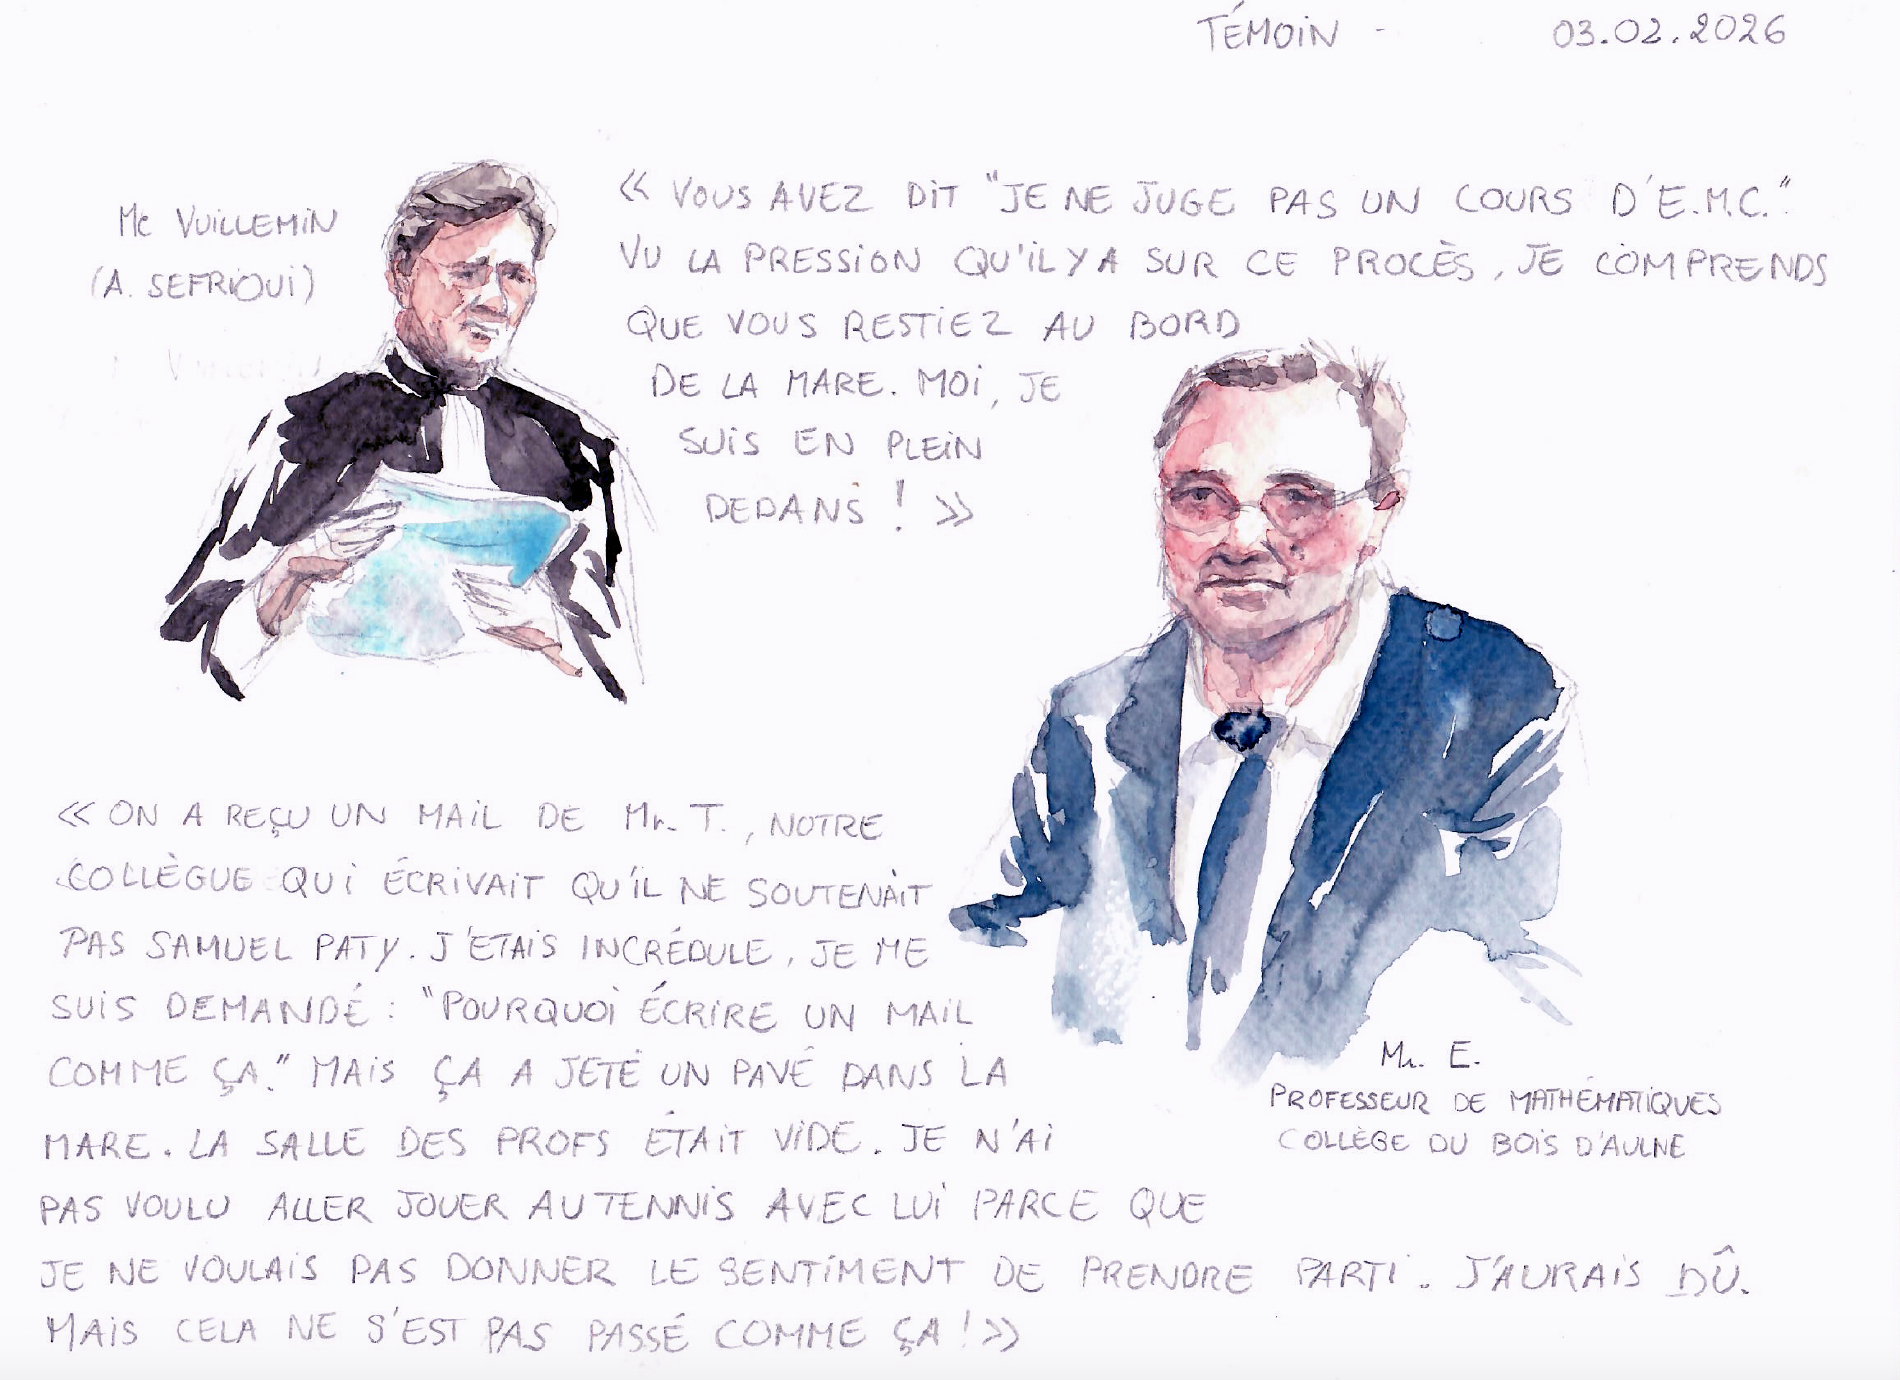 TÉMOIN - 03.02.2026
Me VUILLEMIN
(A. SEFRIOUI)
« VOUS AVEZ DIT "JE NE JUGE PAS UN COURS D'E.M.C."
VU LA PRESSION QU'IL Y A SUR CE PROCÈS, JE COMPRENDS
QUE VOUS RESTIEZ AU BORD
DE LA MARE. MOI, JE
SUIS EN PLEIN
DEDANS ! »
« ON A REÇU UN MAIL DE Mr. T., NOTRE
COLLÈGUE QUI ÉCRIVAIT QU'IL NE SOUTENAIT
PAS SAMUEL PATY. J'ETAIS INCRÉDULE. JE ME
SUIS DEMANDÉ : "POURQUOI ÉCRIRE UN MAIL
COMME ÇA." MAIS ÇA A JETÉ UN PAVÉ DANS LA
MARE. LA SALLE DES PROFS ÉTAIT VIDE. JE N'AI
PAS VOULU ALLER JOUER AU TENNIS AVEC LUI PARCE QUE
JE NE VOULAIS PAS DONNER LE SENTIMENT DE PRENDRE PARTI. J'AURAIS DÛ.
MAIS CELA NE S'EST PAS PASSÉ COMME ÇA ! »
Mr. E.
PROFESSEUR DE MATHÉMATIQUES
COLLÈGE DU BOIS D'AULNE